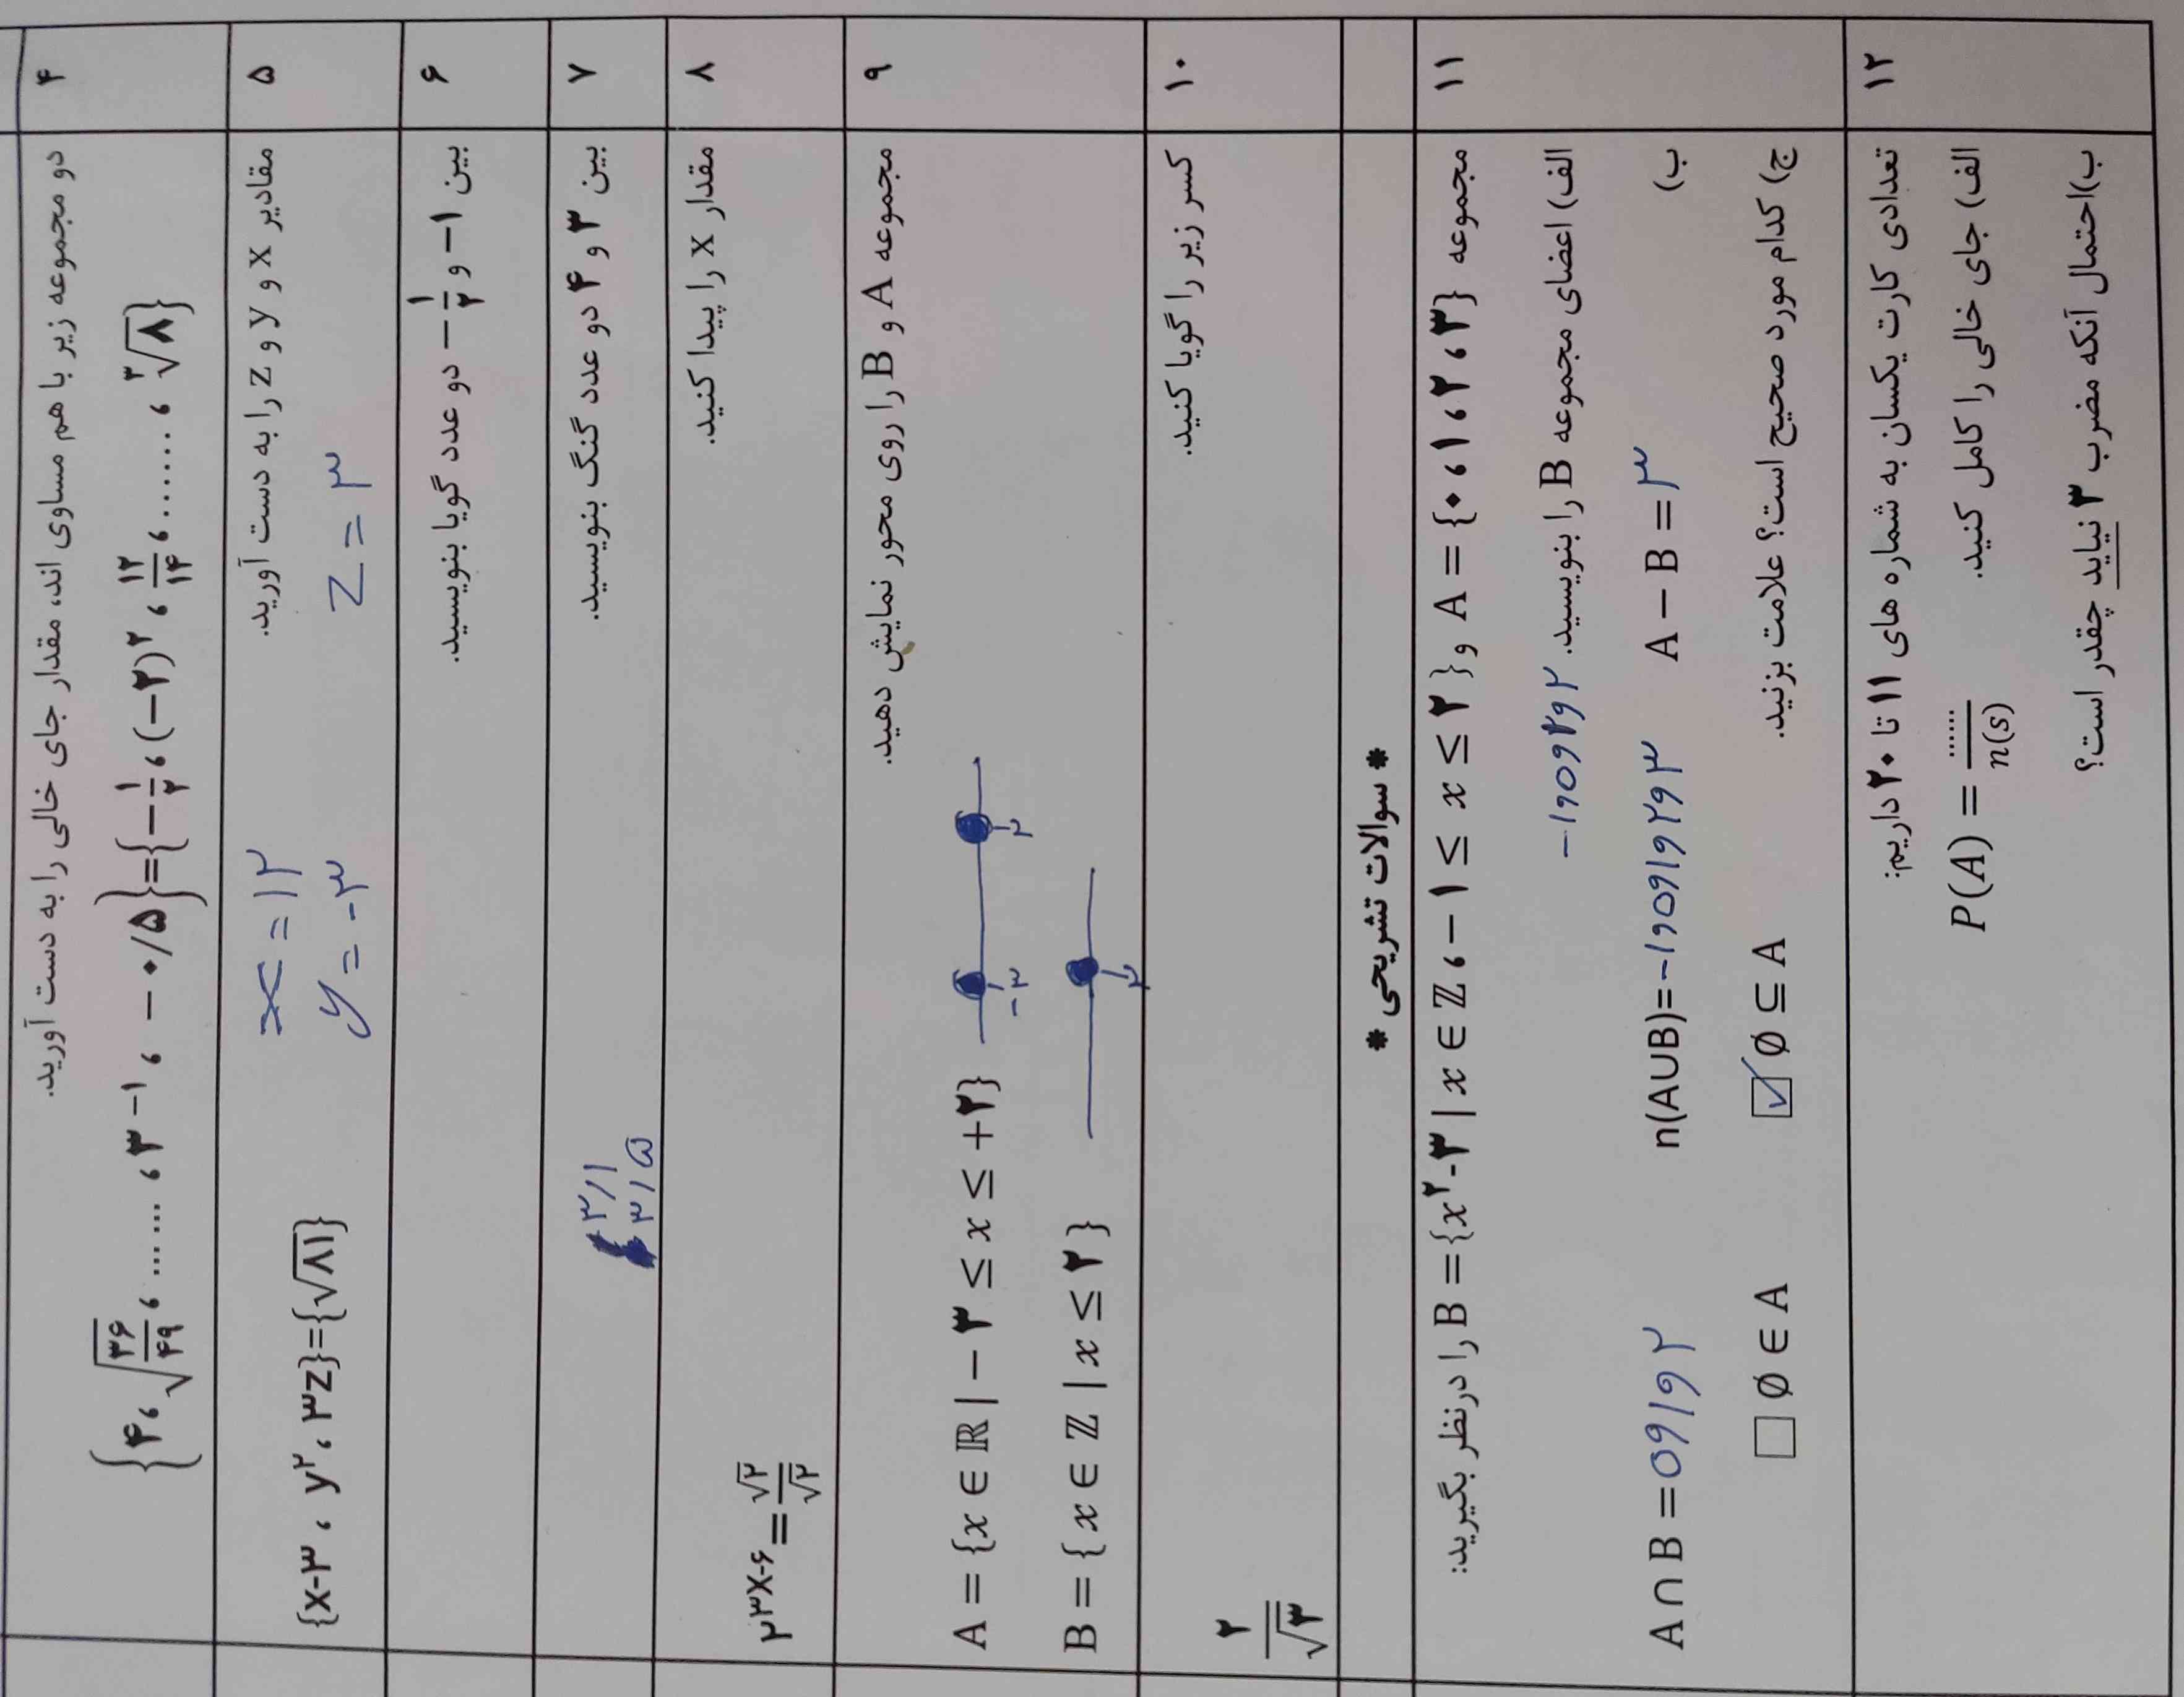 ۴
دو مجموعه زیر با هم مساوی اند، مقدار جای خالی را به دست آورید.
{۴ ، √(۳۶/۴۹) ، ...... ، ۳⁻¹ ، −۰/۵}={−۱/۲ ، (−۲)² ، ۱۲/۱۴ ، ....... ، ³√۸}
۵
مقادیر x و y و z را به دست آورید.
{x-۳ ، y² ، ۳z}={√۸۱}
x = ۱۲
y = -۳
z = ۳
۶
بین ۱− و ۱/۲− دو عدد گویا بنویسید.
۷
بین ۳ و ۴ دو عدد گنگ بنویسید.
۳/۱
۳/۵
۸
مقدار x را پیدا کنید.
۲^(۳x-۶) = √۲/√۲
۹
مجموعه A و B را روی محور نمایش دهید.
A = {x ∈ ℝ | − ۳ ≤ x ≤ +۲}
-۳ ۲
B = { x ∈ ℤ | x ≤ ۲}
۲
۱۰
کسر زیر را گویا کنید.
۲/√۳
* سوالات تشریحی *
۱۱
مجموعه A = {۰ ، ۱ ، ۲ ، ۳} و B ={x²-۳ | x ∈ ℤ ، −۱ ≤ x ≤ ۲} را درنظر بگیرید:
الف) اعضای مجموعه B را بنویسید. -۱,۰و۱و۲
ب)
A ∩ B = ۰و۱و۲ n(A∪B)=-۱,۰و۱و۲و۳ A − B = ۳
ج) کدام مورد صحیح است؟ علامت بزنید.
□ ∅ ∈ A ☑ ∅ ⊆ A
۱۲
تعدادی کارت یکسان به شماره های ۱۱ تا ۲۰ داریم:
الف) جای خالی را کامل کنید. P(A) = ....../n(s)
ب)احتمال آنکه مضرب ۳ نیاید چقدر است؟